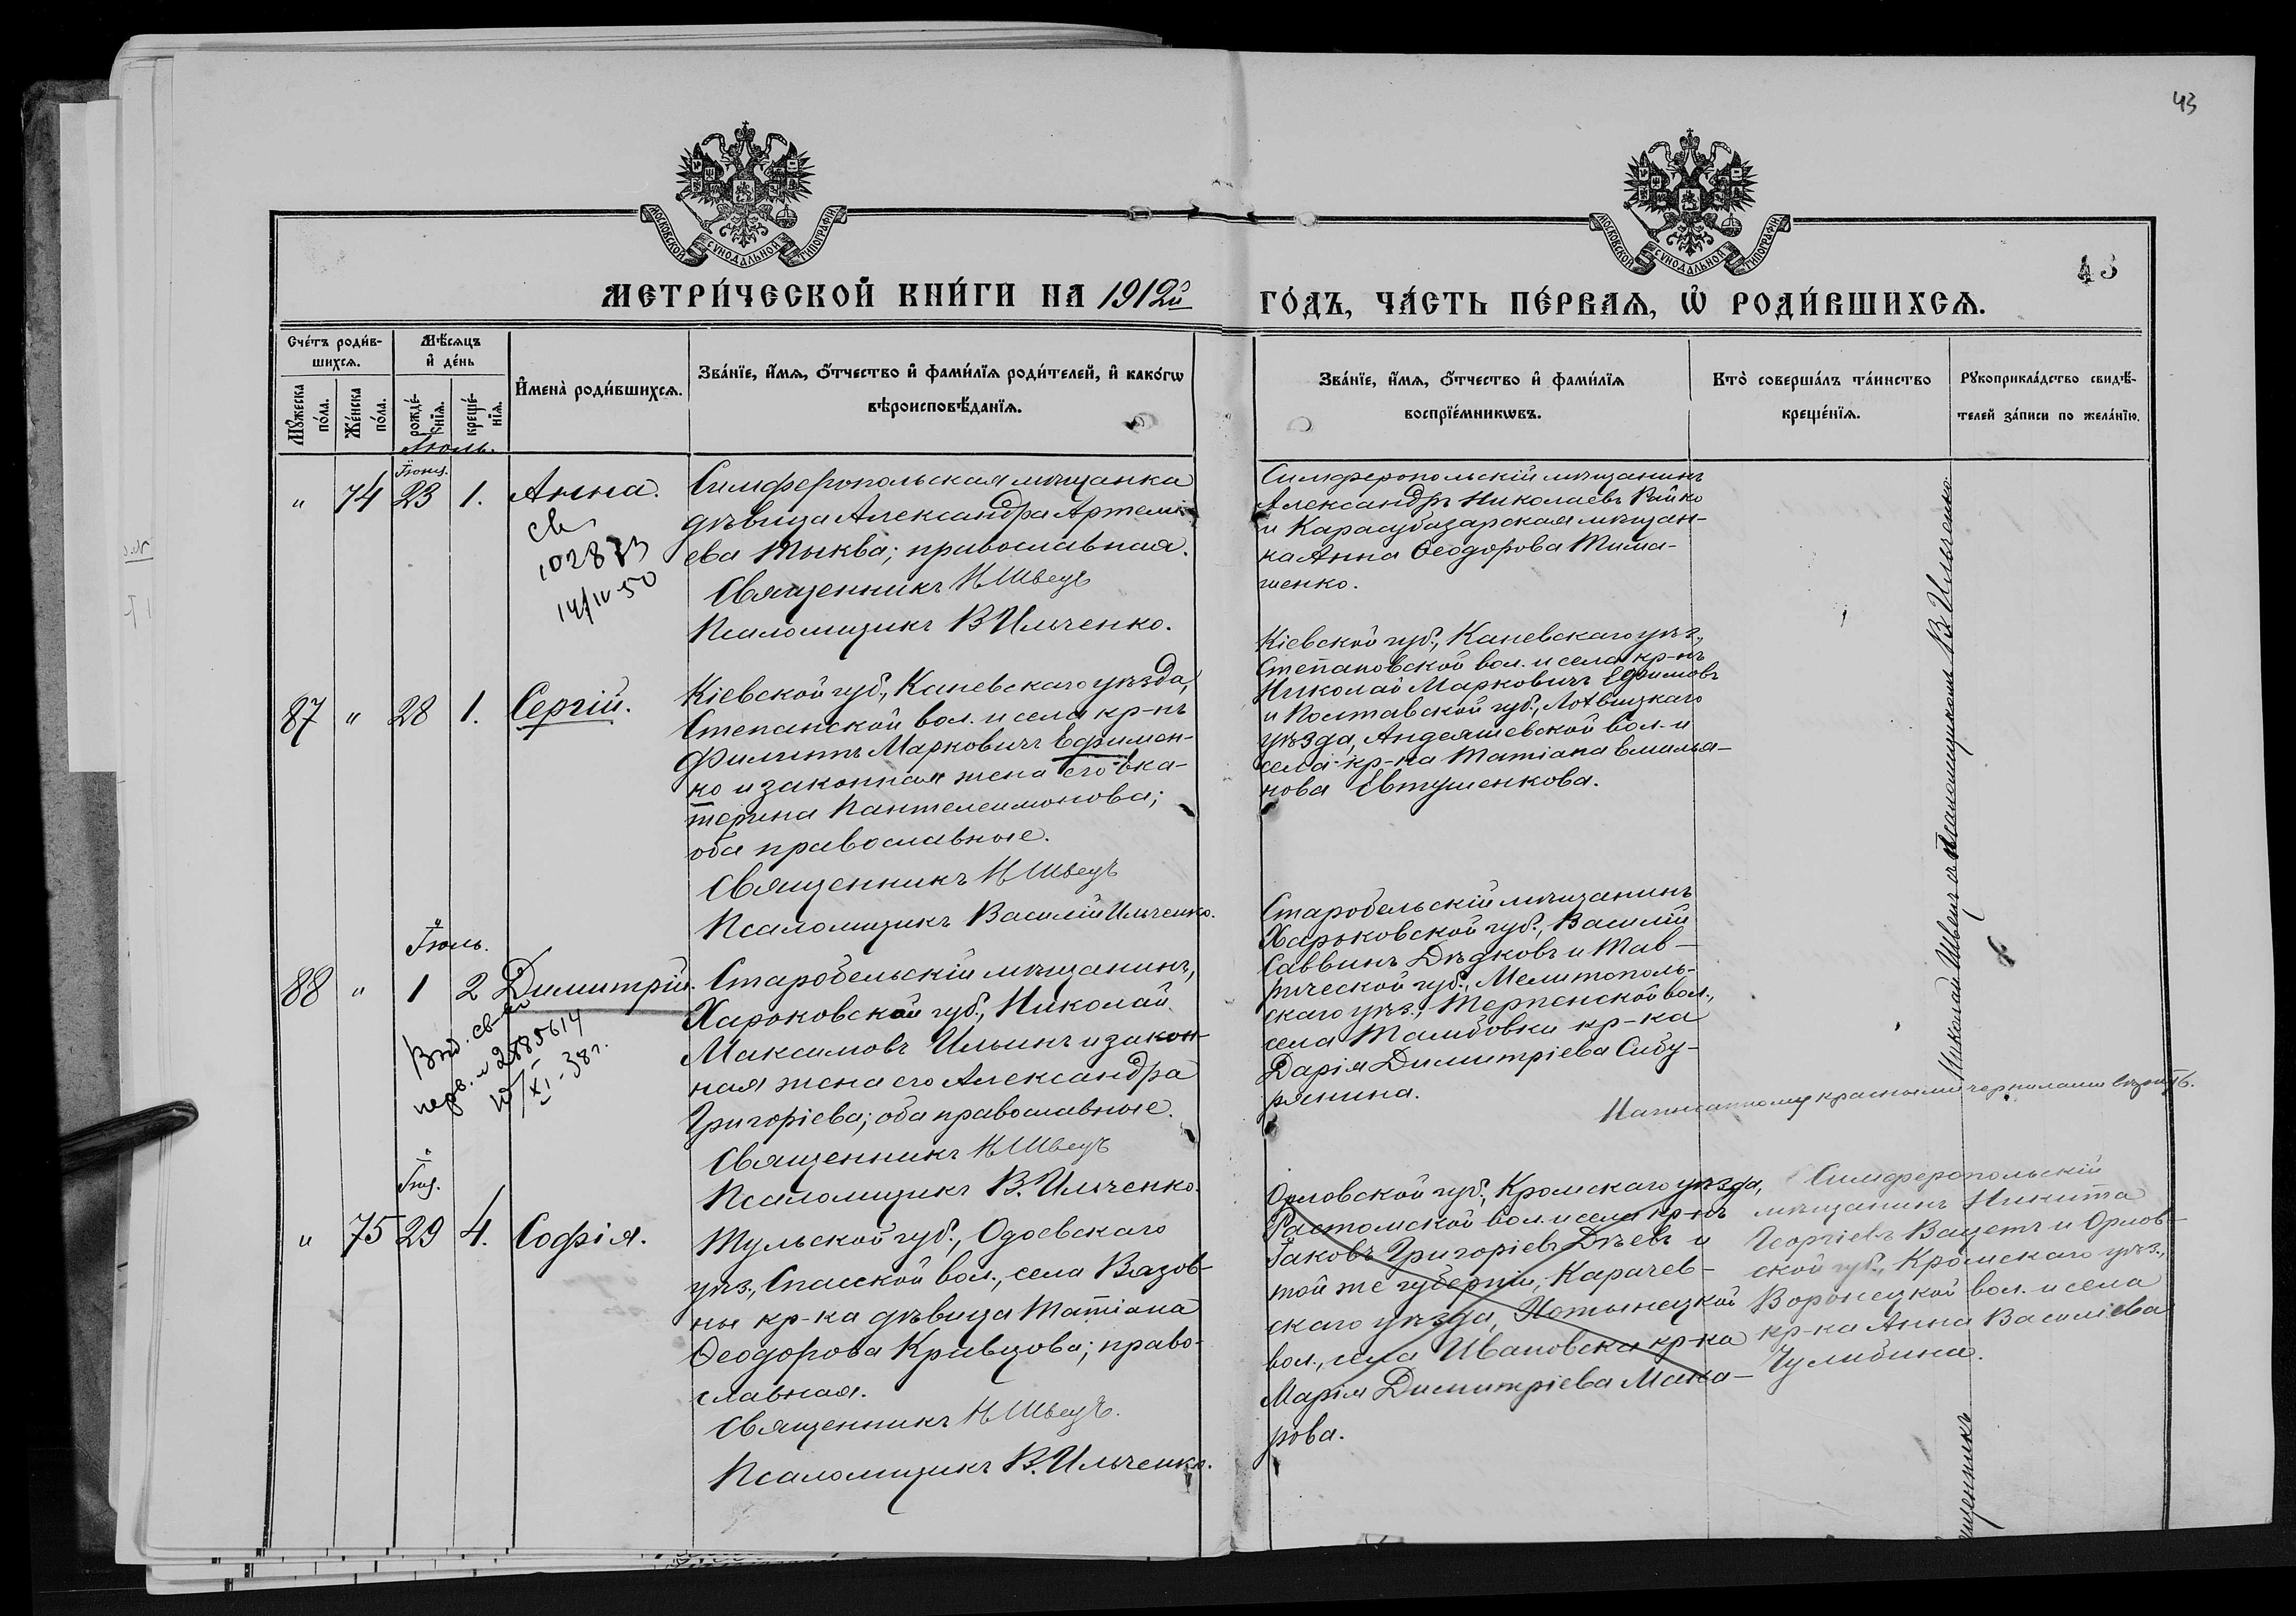 43
МОСКОВСКОЙ СѴНОДАЛЬНОЙ ТИПОГРАФІИ
МОСКОВСКОЙ СѴНОДАЛЬНОЙ ТИПОГРАФІИ
43
МЕТРИ́ЧЕСКОЙ КНИ́ГИ НА 1912й
ГО́ДЪ, ЧА́СТЬ ПЕ́РВАѦ, Ѡ҆ РОДИ́ВШИХСѦ.
Сче́тъ роди́в-
шихсѧ.
Мѣ́сѧцъ
и҆ де́нь
Мꙋ́жеска по́ла.
Же́нска по́ла.
рожде́-
нїѧ.
креще́-
нїѧ.
И҆мена̀ роди́вшихсѧ.
Зва́нїе, и҆́мѧ, ѻ҆́тчество и҆ фами́лїѧ роди́телей, и҆ како́гѡ
вѣроисповѣ́данїѧ.
Зва́нїе, и҆́мѧ, ѻ҆́тчество и҆ фами́лїѧ
воспрїе́мникѡвъ.
Кто̀ соверша́лъ та́инство
креще́нїѧ.
Рꙋкоприкла́дство свидѣ́-
телей за́писи по жела́нїю.
Іюль.
Іюня.
" 74 23 1. Анна.
св
102873
14/IV-50
Симферопольская мѣщанка
дѣвица Александра Артемі-
ева Тыква; православная.
Священникъ Н Швецъ
Псаломщикъ В Ильченко.
Симферопольскій мѣщанинъ
Александръ Николаевъ Райко
и Карасубазарская мѣщан-
ка Анна Ѳеодорова Тима-
шенко.
87 " 28 1. Сергій.
Кіевской губ., Каневскаго уѣзда,
Степанской вол. и села кр-нъ
Филиппъ Марковичъ Ефимен-
ко и законная жена его Ека-
терина Пантелеимонова;
оба православные.
Священникъ Н Швецъ
Псаломщикъ Василій Ильченко.
Кіевской губ., Каневскаго уѣз.,
Степановской вол. и села кр-нъ
Николай Марковичъ Ефимовъ
и Полтавской губ., Лохвицкаго
уѣзда, Андеяшевской вол. и
села кр-ка Татіана Емилья-
нова Евтушенкова.
Іюль.
88 " 1 2 Димитрій.
Выд. св-во
перв. № 2885614
10/XI-38г.
Старобельскій мѣщанинъ,
Харьковской губ., Николай
Максимовъ Ильинъ и закон-
ная жена его Александра
Григоріева; оба православные.
Священникъ Н Швецъ
Псаломщикъ В. Ильченко.
Старобельскій мѣщанинъ
Харьковской губ., Василій
Саввинъ Дѣдковъ и Тав-
рической губ., Мелитополь-
скаго уѣз., Терпенской вол.,
села Тамбовки кр-ка
Дарія Димитріева Сибу-
рянина.
Николай Швецъ с псаломщикомъ В. Ильченко
Написанному красными чернилами вѣрить.
Іюн.
" 75 29 4. Софія.
Тульской губ., Одоевскаго
уѣз., Спасской вол., села Вязов-
ны кр-ка дѣвица Татіана
Ѳеодорова Кривцова; право-
славная.
Священникъ Н Швецъ.
Псаломщикъ В. Ильченко.
Орловской губ., Кромскаго уѣзда,
Ростомской вол. и села кр-нъ
Іаковъ Григоріевъ Дѣевъ и
той же губерніи, Карачев-
скаго уѣзда, Хотынецкой
вол., села Ивановска кр-ка
Марія Димитріева Мака-
рова.
Симферопольскій
мѣщанинъ Никита
Георгіевъ Вацетъ и Орлов-
ской губ., Кромскаго уѣз.,
Воронецкой вол. и села
кр-ка Анна Василіева
Чулибина.